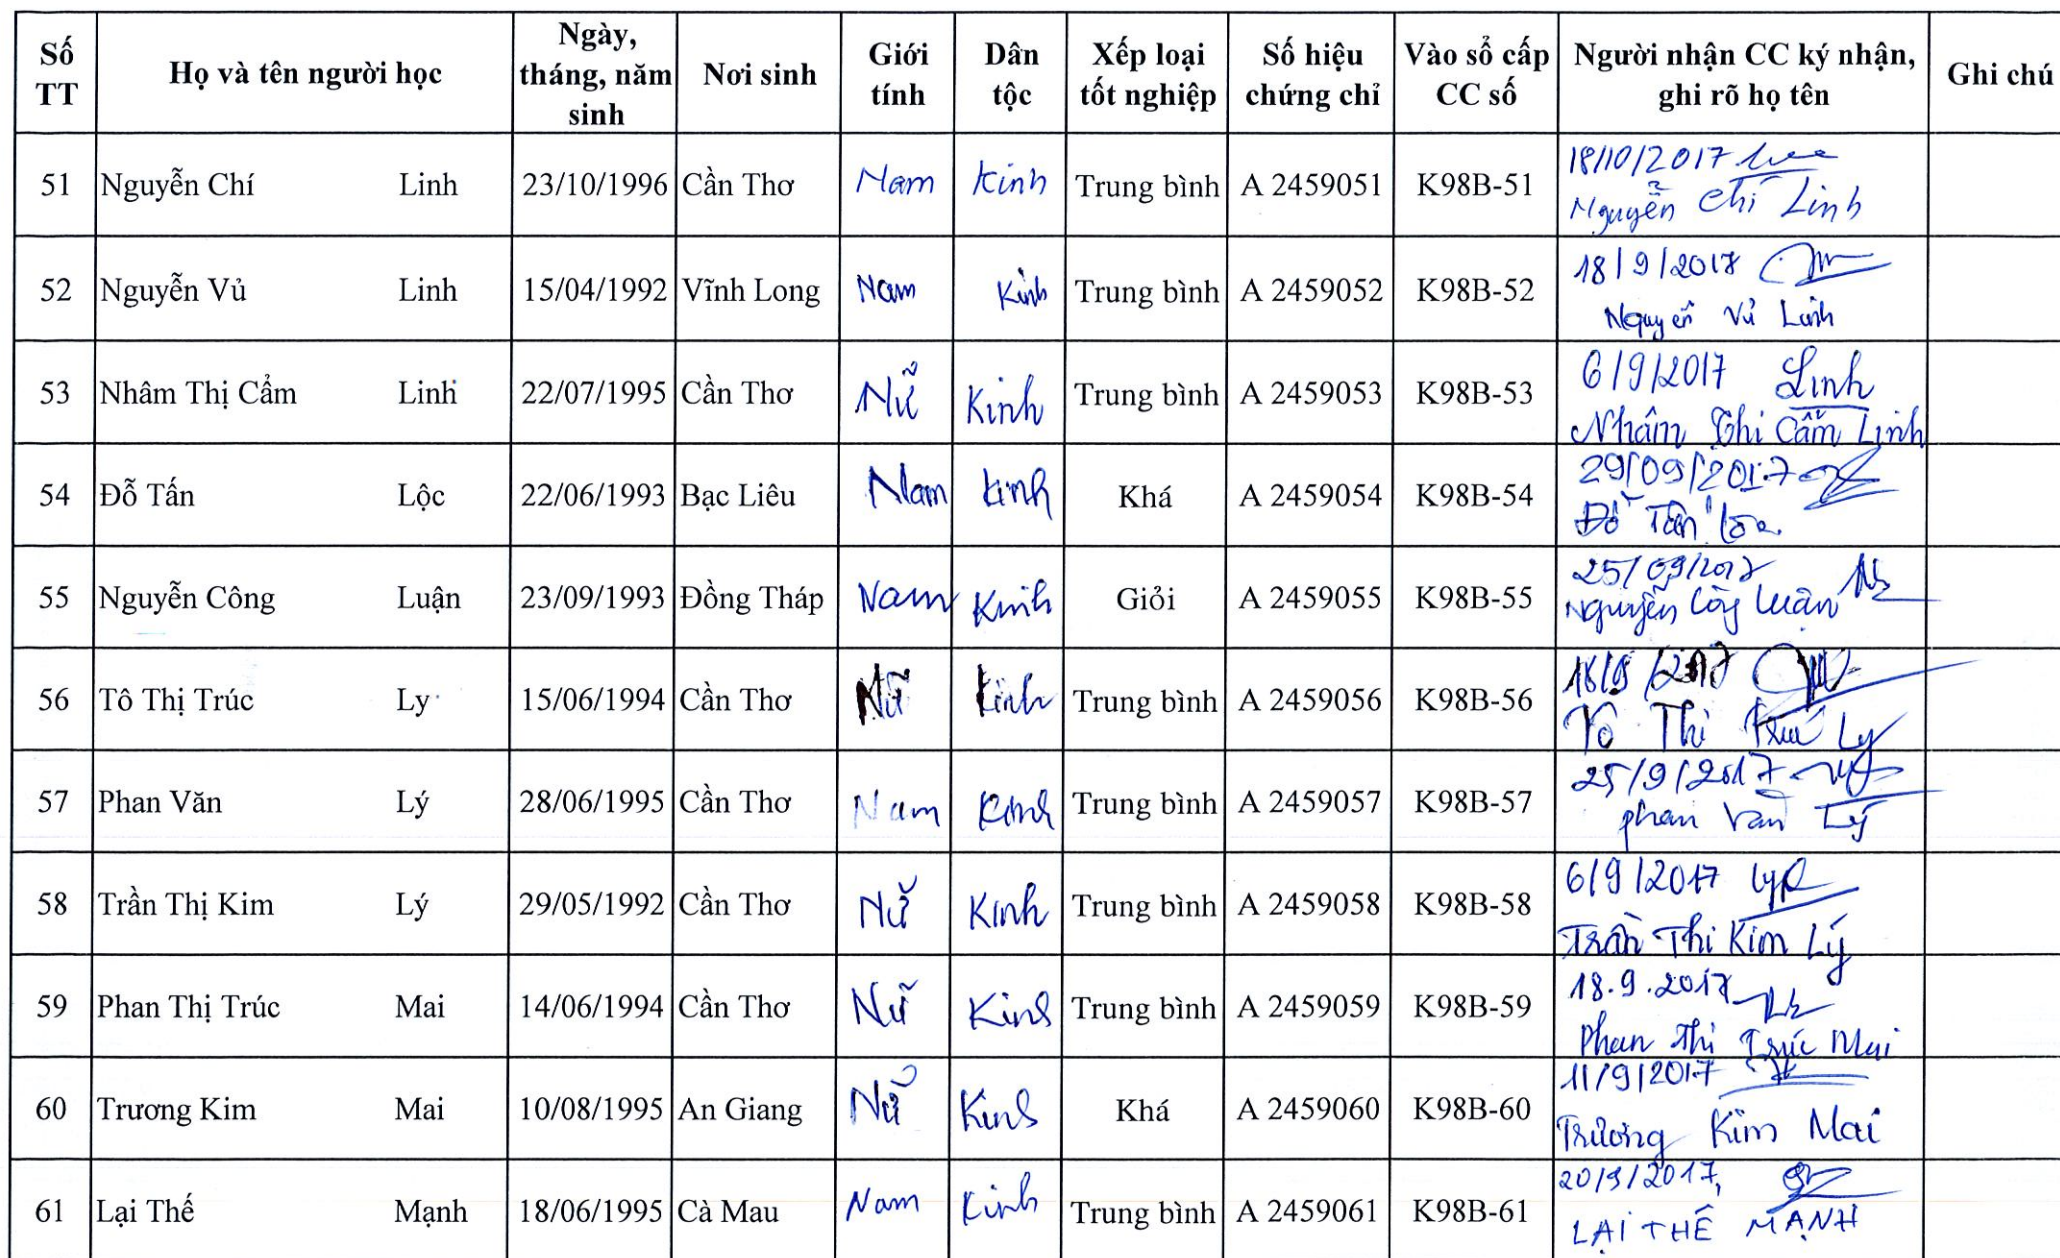 Số TT | Họ và tên người học | Ngày, tháng, năm sinh | Nơi sinh | Giới tính | Dân tộc | Xếp loại tốt nghiệp | Số hiệu chứng chỉ | Vào sổ cấp CC số | Người nhận CC ký nhận, ghi rõ họ tên | Ghi chú
51 | Nguyễn Chí Linh | 23/10/1996 | Cần Thơ | Nam | Kinh | Trung bình | A 2459051 | K98B-51 | 18/10/2017 Nguyễn Chí Linh
52 | Nguyễn Vủ Linh | 15/04/1992 | Vĩnh Long | Nam | Kinh | Trung bình | A 2459052 | K98B-52 | 18/9/2017 Nguyễn Vủ Linh
53 | Nhâm Thị Cẩm Linh | 22/07/1995 | Cần Thơ | Nữ | Kinh | Trung bình | A 2459053 | K98B-53 | 6/9/2017 Linh Nhâm Thị Cẩm Linh
54 | Đỗ Tấn Lộc | 22/06/1993 | Bạc Liêu | Nam | Kinh | Khá | A 2459054 | K98B-54 | 29/09/2017 Đỗ Tấn Lộc
55 | Nguyễn Công Luận | 23/09/1993 | Đồng Tháp | Nam | Kinh | Giỏi | A 2459055 | K98B-55 | 25/09/2017 Nguyễn Công Luận
56 | Tô Thị Trúc Ly | 15/06/1994 | Cần Thơ | Nữ | Kinh | Trung bình | A 2459056 | K98B-56 | Tô Thị Trúc Ly
57 | Phan Văn Lý | 28/06/1995 | Cần Thơ | Nam | Kinh | Trung bình | A 2459057 | K98B-57 | 25/9/2017 phan Văn Lý
58 | Trần Thị Kim Lý | 29/05/1992 | Cần Thơ | Nữ | Kinh | Trung bình | A 2459058 | K98B-58 | 6/9/2017 Trần Thị Kim Lý
59 | Phan Thị Trúc Mai | 14/06/1994 | Cần Thơ | Nữ | Kinh | Trung bình | A 2459059 | K98B-59 | 18.9.2017 Phan Thị Trúc Mai
60 | Trương Kim Mai | 10/08/1995 | An Giang | Nữ | Kinh | Khá | A 2459060 | K98B-60 | 11/9/2017 Trương Kim Mai
61 | Lại Thế Mạnh | 18/06/1995 | Cà Mau | Nam | Kinh | Trung bình | A 2459061 | K98B-61 | 20/9/2017, LẠI THẾ MẠNH